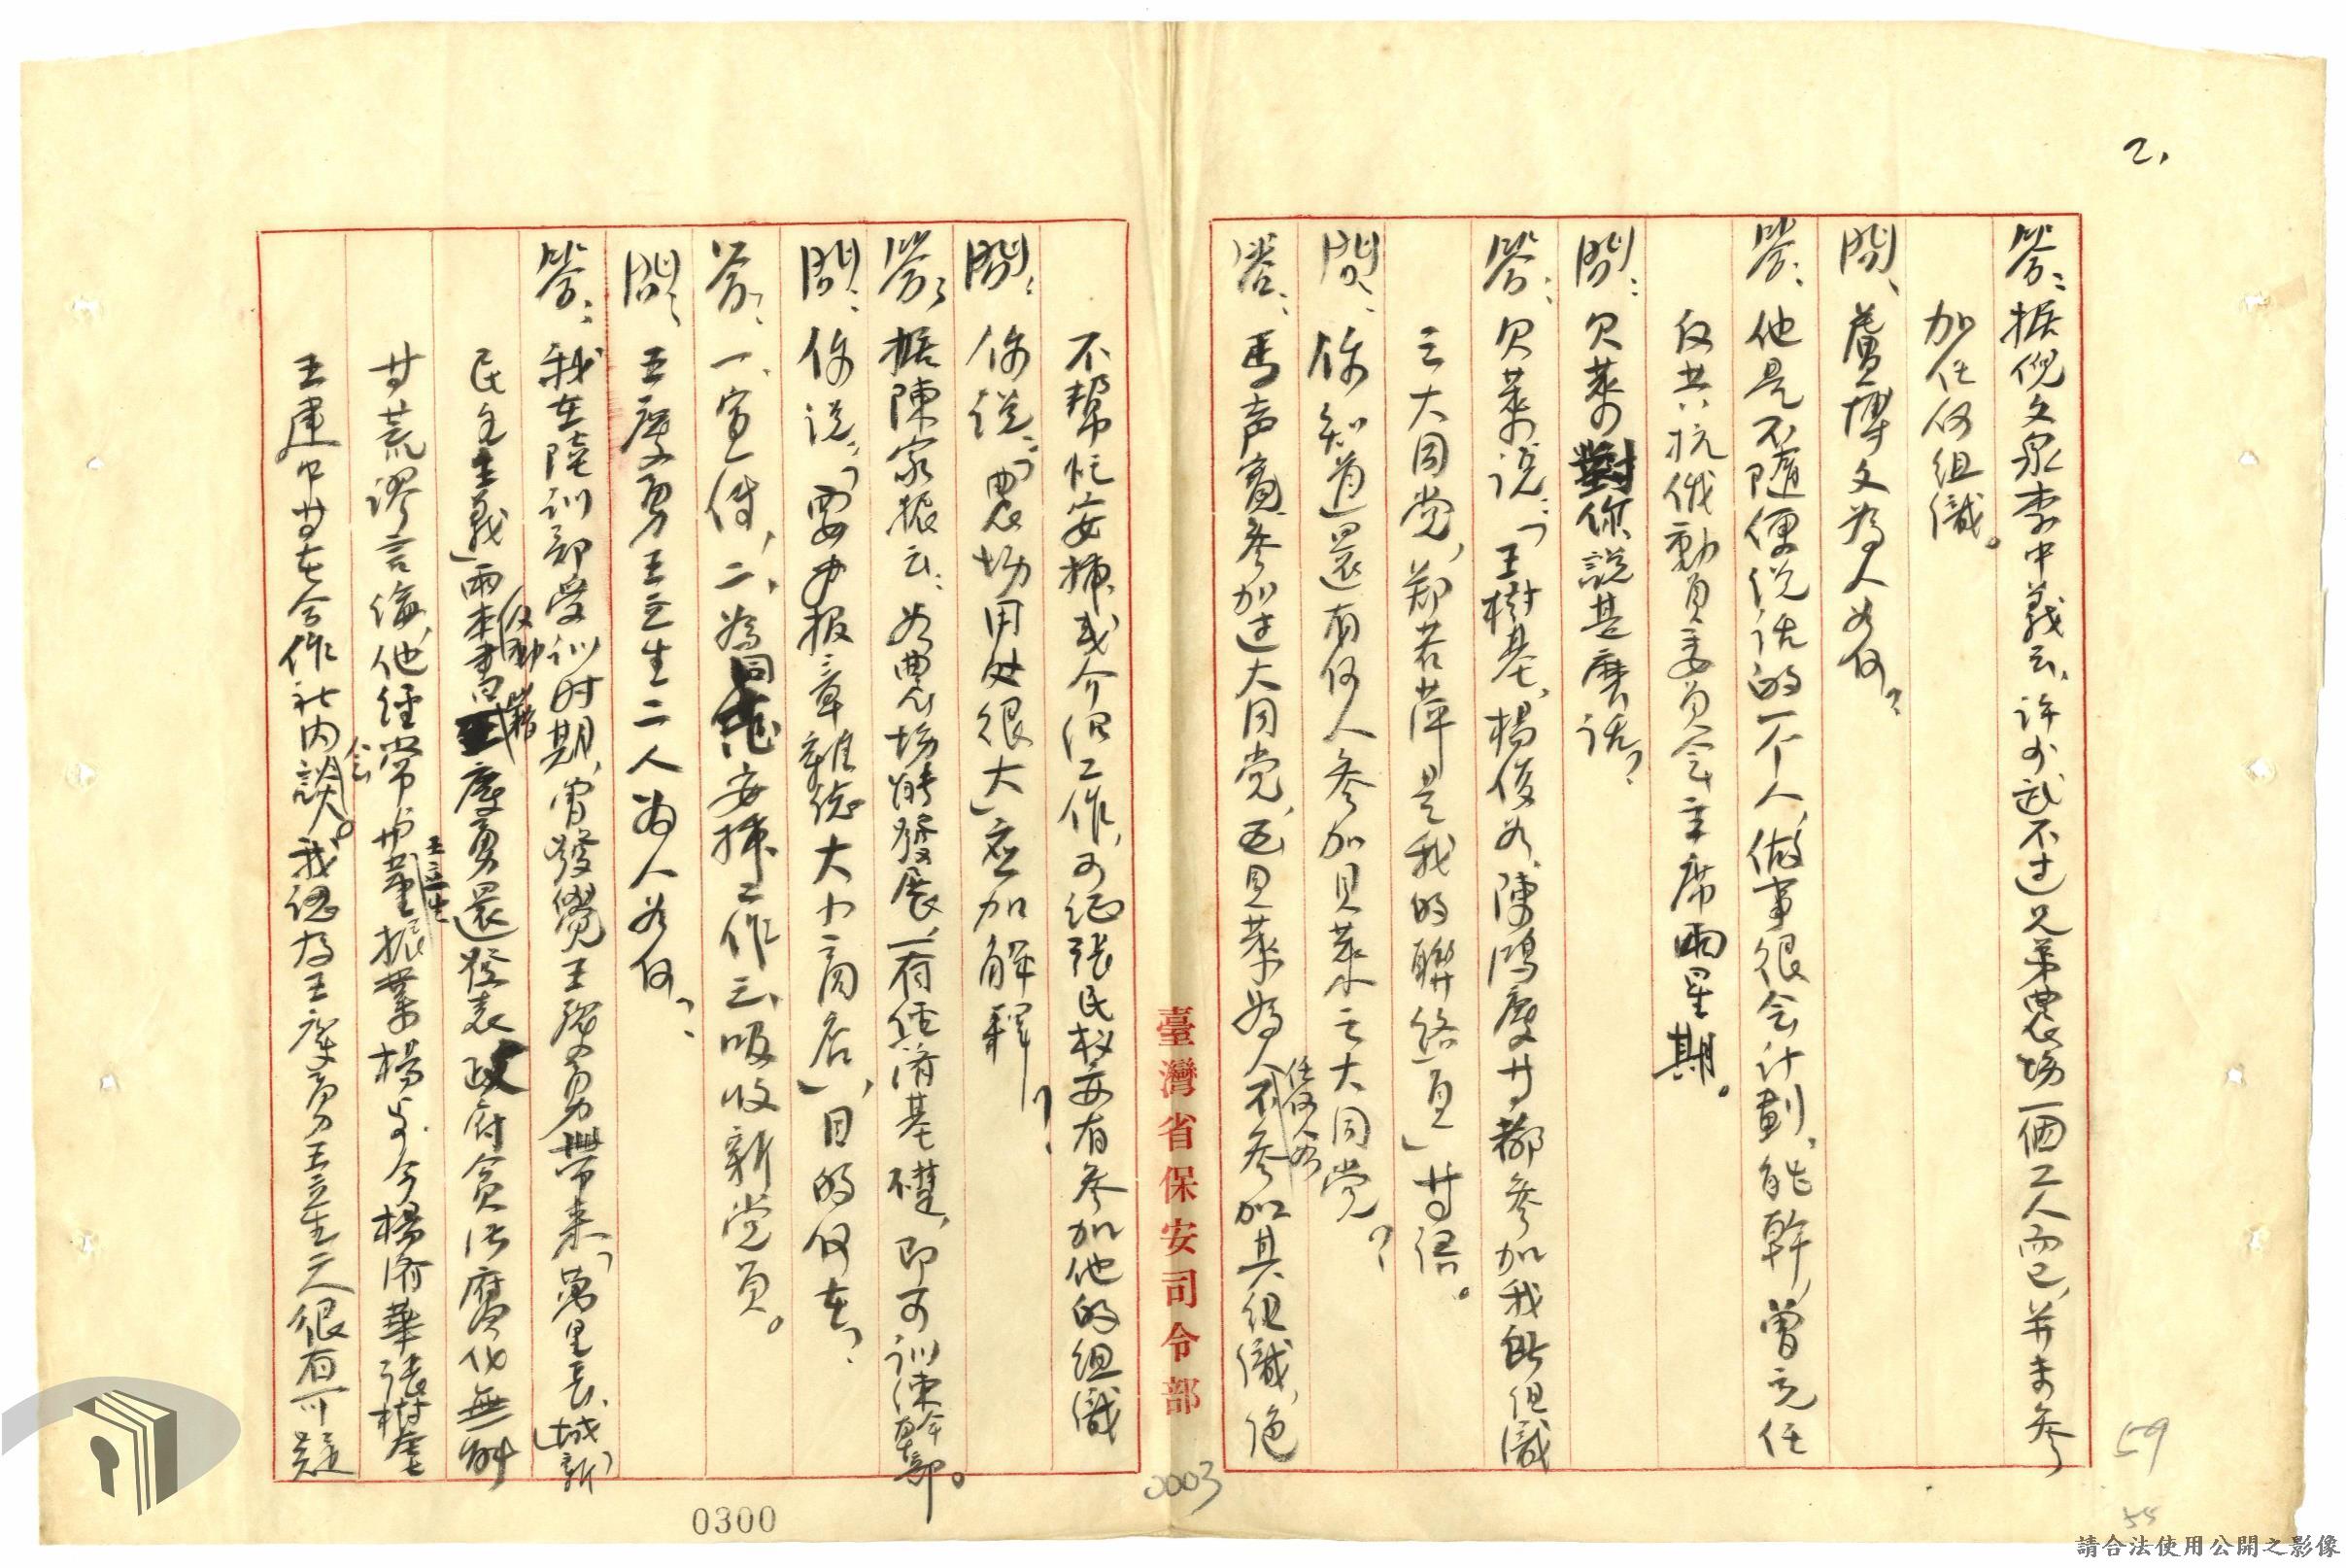 2,
答：据倪文泉李中義云，許水武不过兄弟農场一個工人而已，并未參
加任何组織。
問、盧博文為人如何？
答：他是不随便说话的一个人，做事很会计劃，能幹，曾充任
反共抗俄動員委員会主席兩星期。
問：貝萊對你說甚麼话？
答：貝萊說：「王樹基、楊俊如、陳鴻慶廿都參加我的组識
云大同党，郑若萍是我的聯络員」廿语。
問、你知道還有何人參加貝萊之大同党？
答：馬声寬參加过大同党，至貝萊為人，任何人如不參加其组織，绝
不帮忙安插或介绍工作，可证張民权要有參加他的组織
問：你说：「農场用处很大」应加解釋！
答：據陳家振云：如農场能發展，有經济基礎，即可訓練幹部。
問：你说：「要申报三章雜誌大小商店」，目的何在？
答：一、宣傳，二、為同志安插工作三、吸收新党員。
問：王慶勇王立生二人为人如何？
答：我在陸训部受训时期，曾發覺王慶勇帶来「萬里長城」「新
民主主義」兩本反動書籍王慶勇還發表政府貪污腐化無能
廿荒谬言論，他經常与董振業王立生楊 今楊济華張樹
王建中廿在合作社内会談。我認为王慶勇王立生二人很有可疑
臺灣省保安司令部
0003
0300
59
55
請合法使用公開之影像